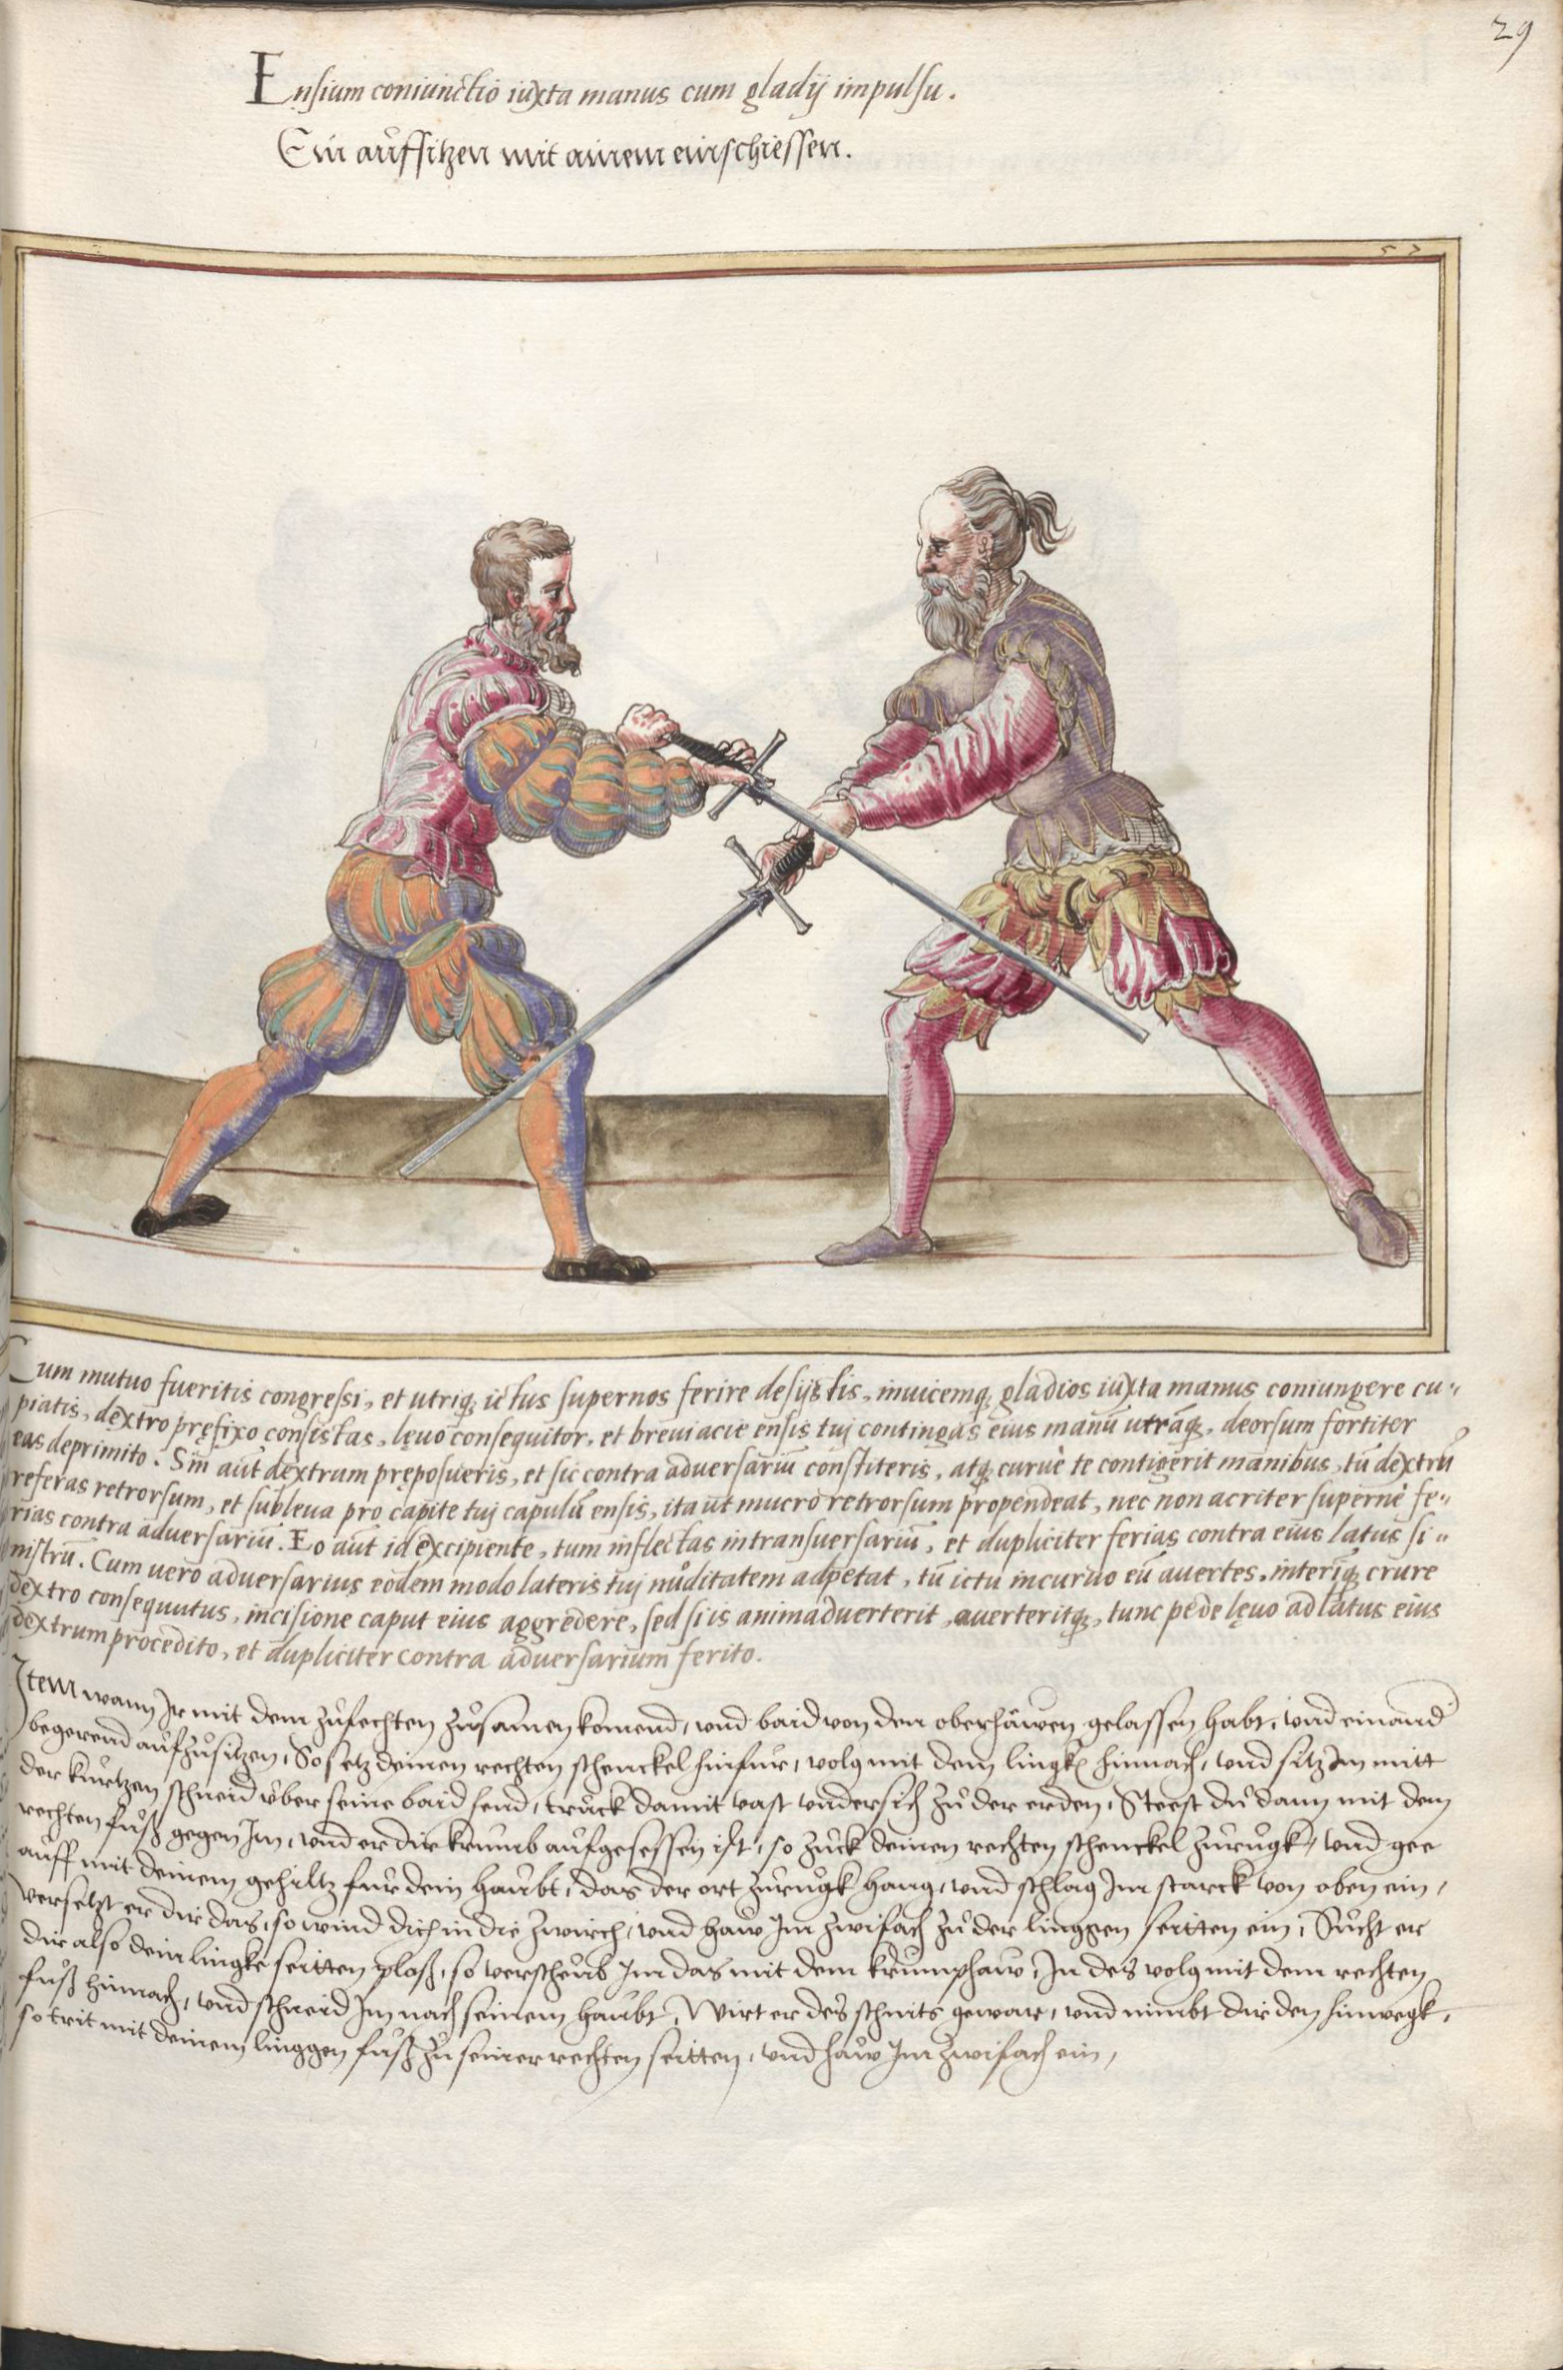 29
Ensium coniunctio iuxta manus cum gladij impulsu.
Ein aůffsitzen mit ainem einschiessen.
Cum mutuo fueritis congressi, et utriq; ictus supernos ferire desijstis, inuicemq; gladios iuxta manus coniungere cu⸗
piatis, dextro pręfixo consistas, lęuo consequitor, et breui acie ensis tuj contingas eius manū utrāq;, deorsum fortiter
eas deprimito. Sin aūt dextrum pręposueris, et sic contra aduersariū constiteris, atq; curuè te contigerit manibus, tū dextrū
referas retrorsum, et subleua pro capite tuj capulū ensis, ita ut mucro retrorsum propendeat, nec non acriter supernè fe⸗
rias contra aduersariū. Eo aūt id excipiente, tum inflectas in transuersariū, et dupliciter ferias contra eius latus si⸗
nistrū. Cum uero aduersarius eodem modo lateris tuj nůditatem adpetat, tū ictu incuruo eū auertes, interiq; crure
dextro consequutus, incisione caput eius aggredere, sed si is animaduerterit, auerteritq;, tunc pede lęuo ad latus eius
dextrum procedito, et dupliciter contra aduersarium ferito.
Item wann Ir mit dem zůfechten zůsamen komend, vnd baid von den oberhäwen gelassen habt, vnd einand
begerend aůfzůsitzen, So setz deinen rechten schenckel hinfür, volg mit dem lingk hinnach, vnd sitz Im mitt
der kůrtzen schneid über seine baid hend, trůck damit vast vndersich zů der erden, Steest dů dann mit dem
rechten fůß gegen Im, vnd er dir krumb aůfgesessen ist, so zůck deinen rechten schenckel zůrůgk, vnd gee
aůff mit deinem gehiltz für dein haůbt, das der ort zůrůgk hang, vnd schlag Im starck von oben ein,
Versetzt er dir das, so wind dich in die zwirch, vnd haw Im zwifach zů der linggen seitten ein, Sůcht er
dir also dein lingke seitten ploß, so verscheůb Im das mit dem krůmphaw, In des volg mit dem rechten
fůß hinnach, vnd schneid Im nach seinem haůbt, Wirt er des schnits gewar, vnd nimbt dir den hinwegk,
so trit mit deinem linggen fůß zů seiner rechten seitten, vnd haw Im zwifach ein,